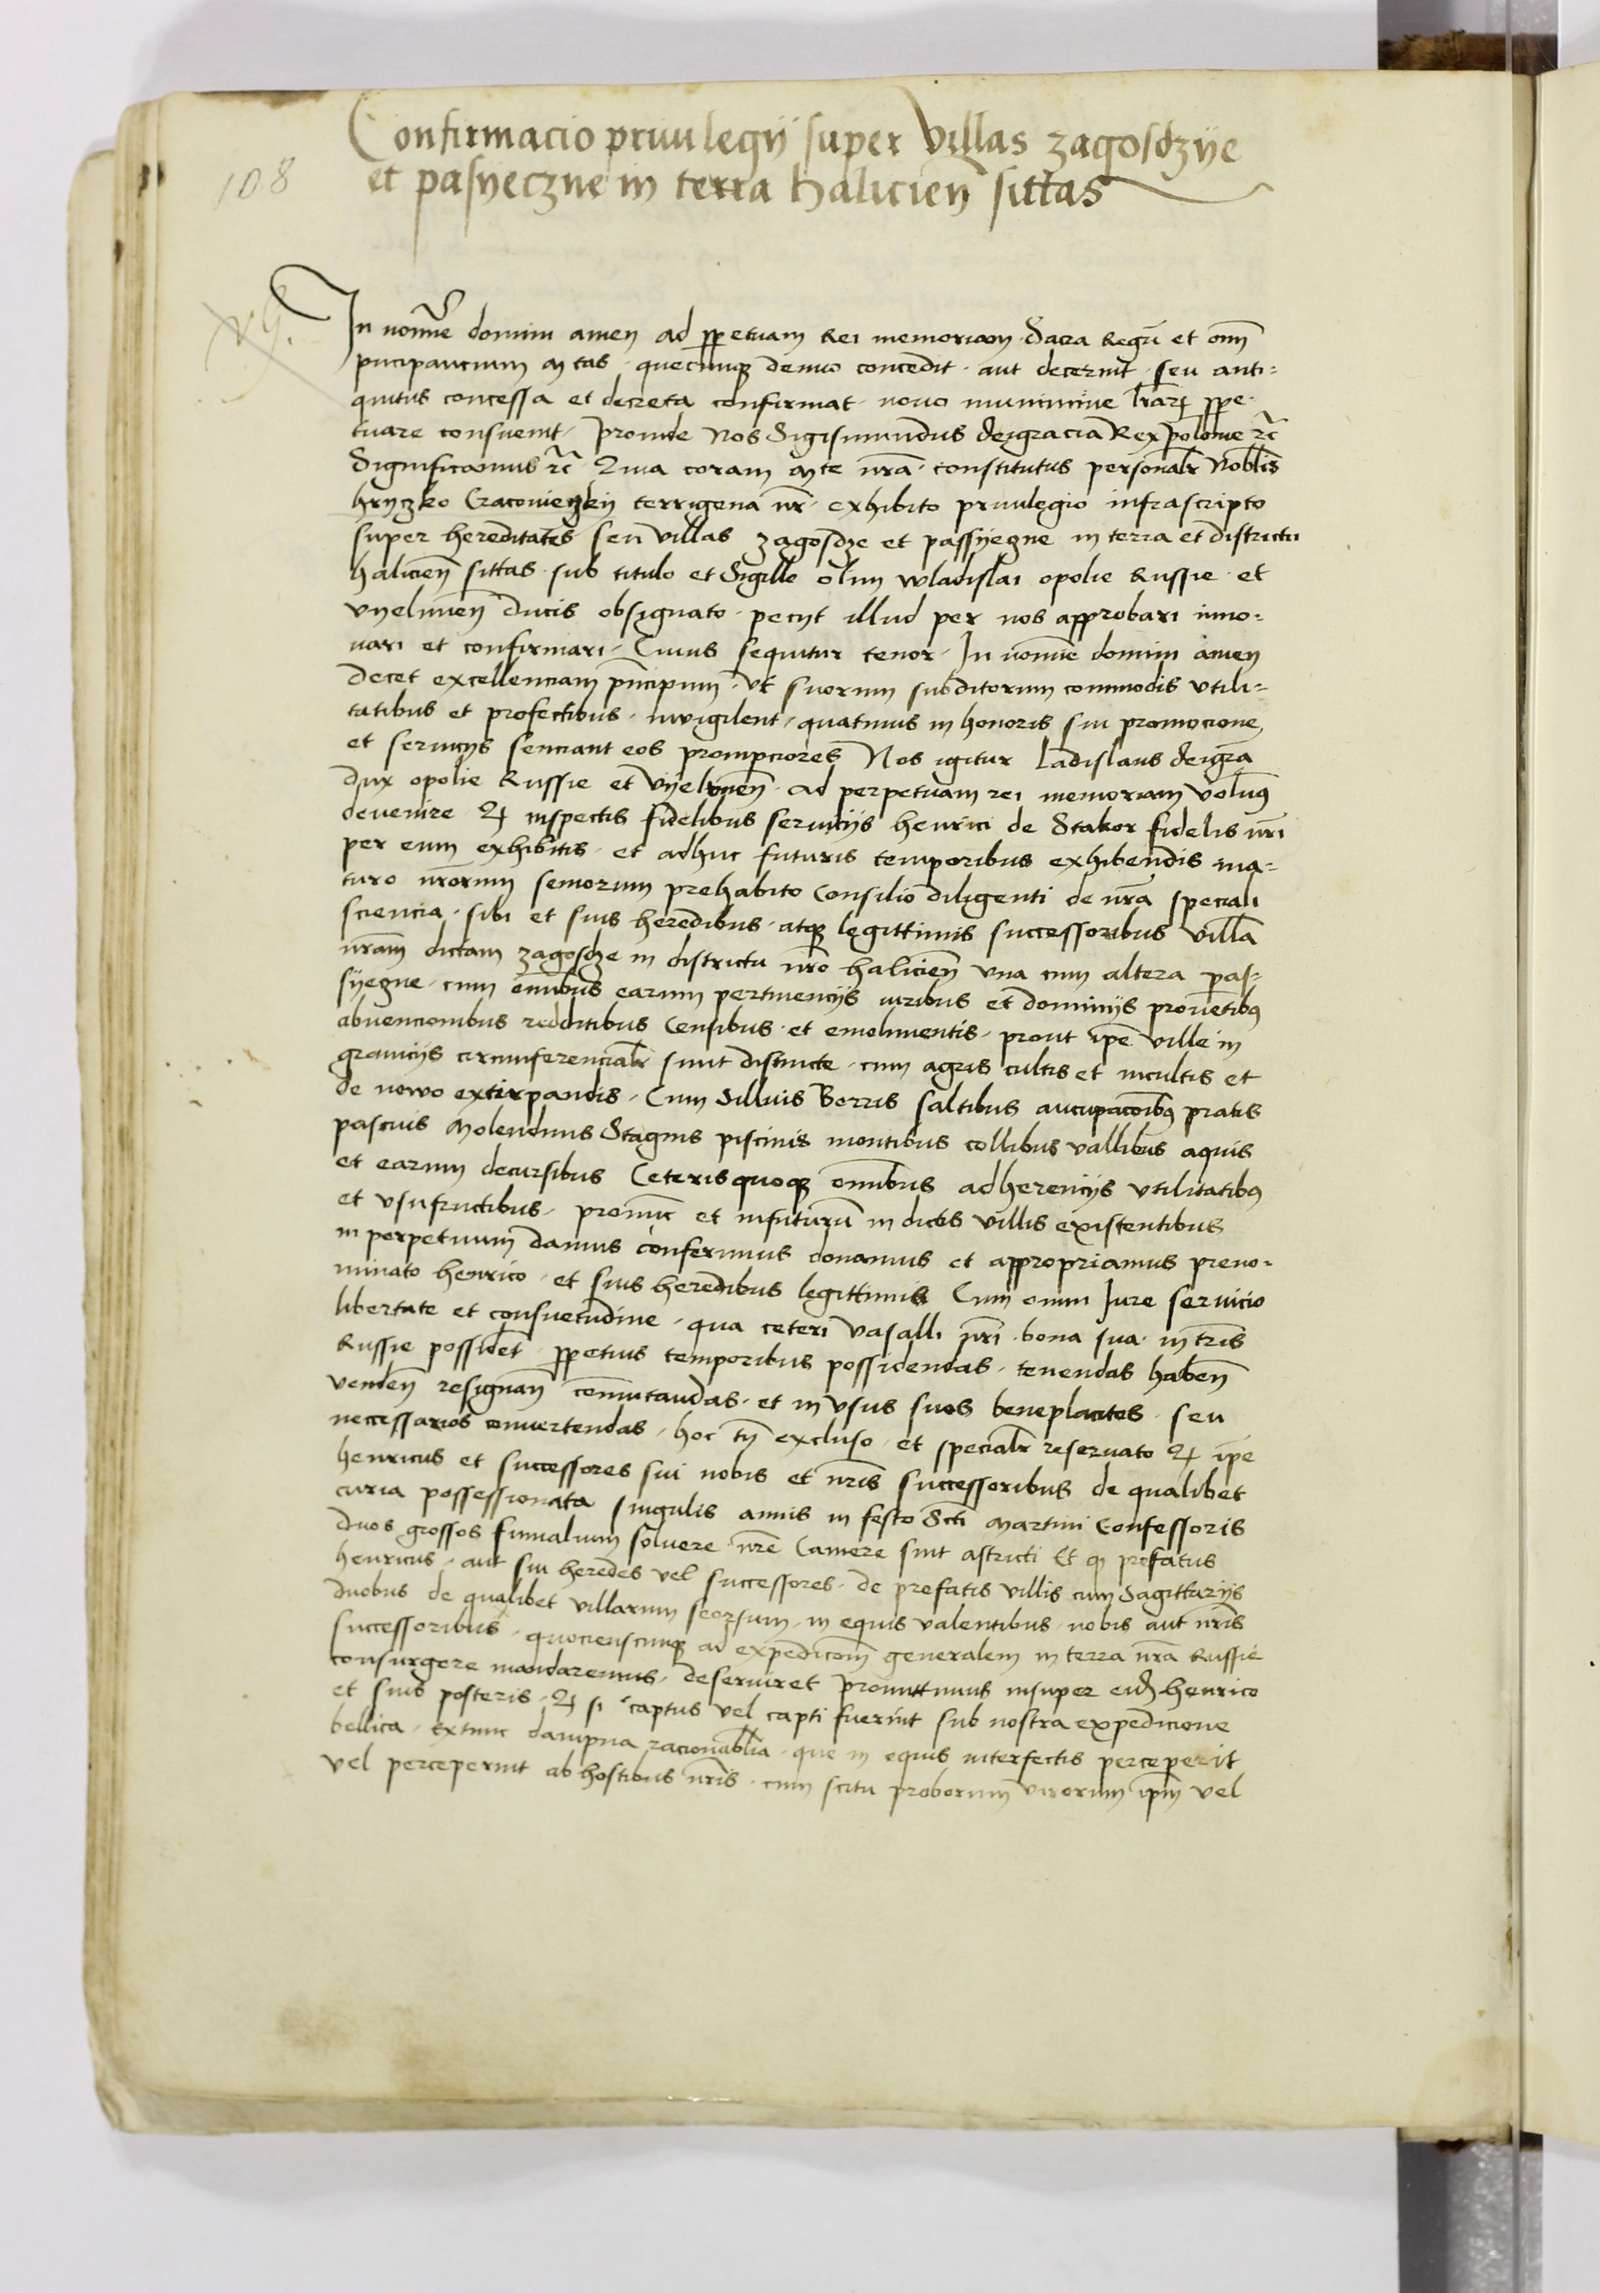 Confirmacio priuilegÿ super villas zagosdzÿe
et pasÿeczne in terra halicieñ sittas
108
In nomīe domini amen ad ꝑpetuam Rei memoriam Sacra Regū et om̄
pncipancium Mtas quecumqꝫ denuo concedit aut decernit seu anti-
quitus concessa et decreta confirmat nouo munimine lrarꝝ ꝑpe-
tuare consueuit Proinde Nos Sigismundus deigracia Rex polonie rc̄
Significamus rc̄ Quia coram Mte nrā constitutus personalr Nobilis
hryczko Czaconieczkÿ terrigena nr̄ exhibito priuilegio infrascripto
super hereditates seu villas zagosdze et passÿegne in terra et districtu
halicieñ sittas sub titulo et Sigillo olim wladislai opolie Russie et
vÿelunen̄ Ducis obsignato pecyt illud per nos approbari inno-
uari et confirmari Cuius sequitur tenor In nomīe domini amen
Decet excellenciam pn̄cipum vt suorum subditorum commodis vtili-
tatibus et profectibus inuigilent quatinus in honoris sui promocione
et seruicÿs senciant eos prompciores Nos igitur Ladislaus deigrā
dux opolie Russie et vÿelunen̄ ad perpetuam rei memoriam volumꝰ
deuenire Qꝫ inspectis fidelibus seruicÿs henrici de Stakor fidelis nr̄i
per eum exhibitis et adhuc futuris temporibus exhibendis ma-
turo nr̄orum seniorum prehabito Consilio diligenti de nrā speciali
sciencia sibi et suis heredibus atqꝫ legittimis successoribus villā
nrām dictam zagosdze in districtu nrō halicieñ vna cum altera pas-
sÿegne cum om̄ibus earum pertinencÿs iuribus et dominÿs prouētibꝰ
obuencionibus redditibus Censibus et emolimentis prout ip̄e ville in
granicÿs circumferencialr sunt distincte cum agris cultis et incultis et
de nowo extirpandis Cum Silluis Borris saltibus aucupacōibꝰ pratis
pascuis Molendinis Stagnis piscinis montibus collibus vallibus aquis
et earum decursibus Ceterisquoqꝫ om̄ibus adherencÿs vtilitatibꝰ
et vsufructibus pronunc et infuturū in dictis villis existentibus
in perpetuum damus conferimus donamus et appropriamus preno-
minato henrico et suis heredibus legittimis Cum omni Jure seruicio
libertate et consuetudine qua ceteri vasalli nr̄i bona sua in tr̄is
Russie possidēt ꝑpetuis temporibus possidendas tenendas habeñ
venden̄ resignan̄ com̄utandas et in vsus suos beneplacitos seu
neccessarios conuertendas hoc tn̄ excluso et specialr reseruato Qꝫ ip̄e
henricus et successores sui nobis et nr̄is successoribus de qualibet
curia possessionata singulis annis in festo Scti Martini Confessoris
duos grossos fumalium soluere nr̄e Camere sint astricti Et qꝫ prefatus
henricus aut sui heredes vel successores de prefatis villis cum Sagittarÿs
duobus de qualibet villarum seorsum in equis valentibus nobis aut nr̄is
successoribus quocienscumqꝫ ad expedicōm generalem in terra nrā Russie
consurgere mandaremus deseruiret Promittimus insuper eidꝫ henrico
et suis posteris Qꝫ si captus vel capti fuerint sub nostra expedicione
bellica extunc dampna racionabilia que in equis interfectis perceperit
vel perceperint ab hostibus nr̄is cum scitu proborum virorum ip̄m vel